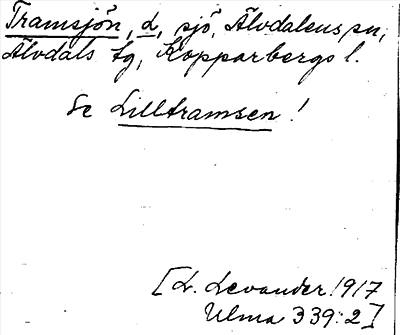 Tramsjön, L, sjö, Älvdalens sn,
Älvdals tg, Kopparbergs l.
Se Lilltramsen!
[L. Levander 1917
Ulma 339:2]